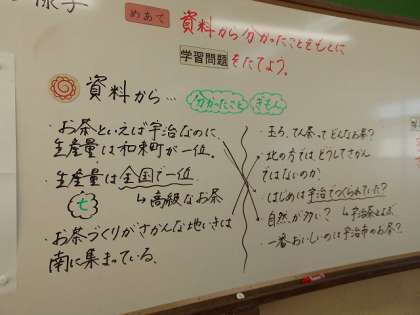 めあて
資料から分かったことをもとに
学習問題をたてよう。
資料から…
分かったこと
ぎもん
・お茶といえば宇治なのに、
生産量は和束町が一位。
・生産量は全国で一位
七
↳高級なお茶
・お茶づくりがさかんな地いきは
南に集まっている。
・玉ろ、てん茶ってどんなお茶?
・北の方では、どうしてさかん
ではないのか?
・はじめは宇治でつくられていた?
・自然が多い?
↳宇治茶とよぶ
・一番おいしいのは宇治市のお茶?